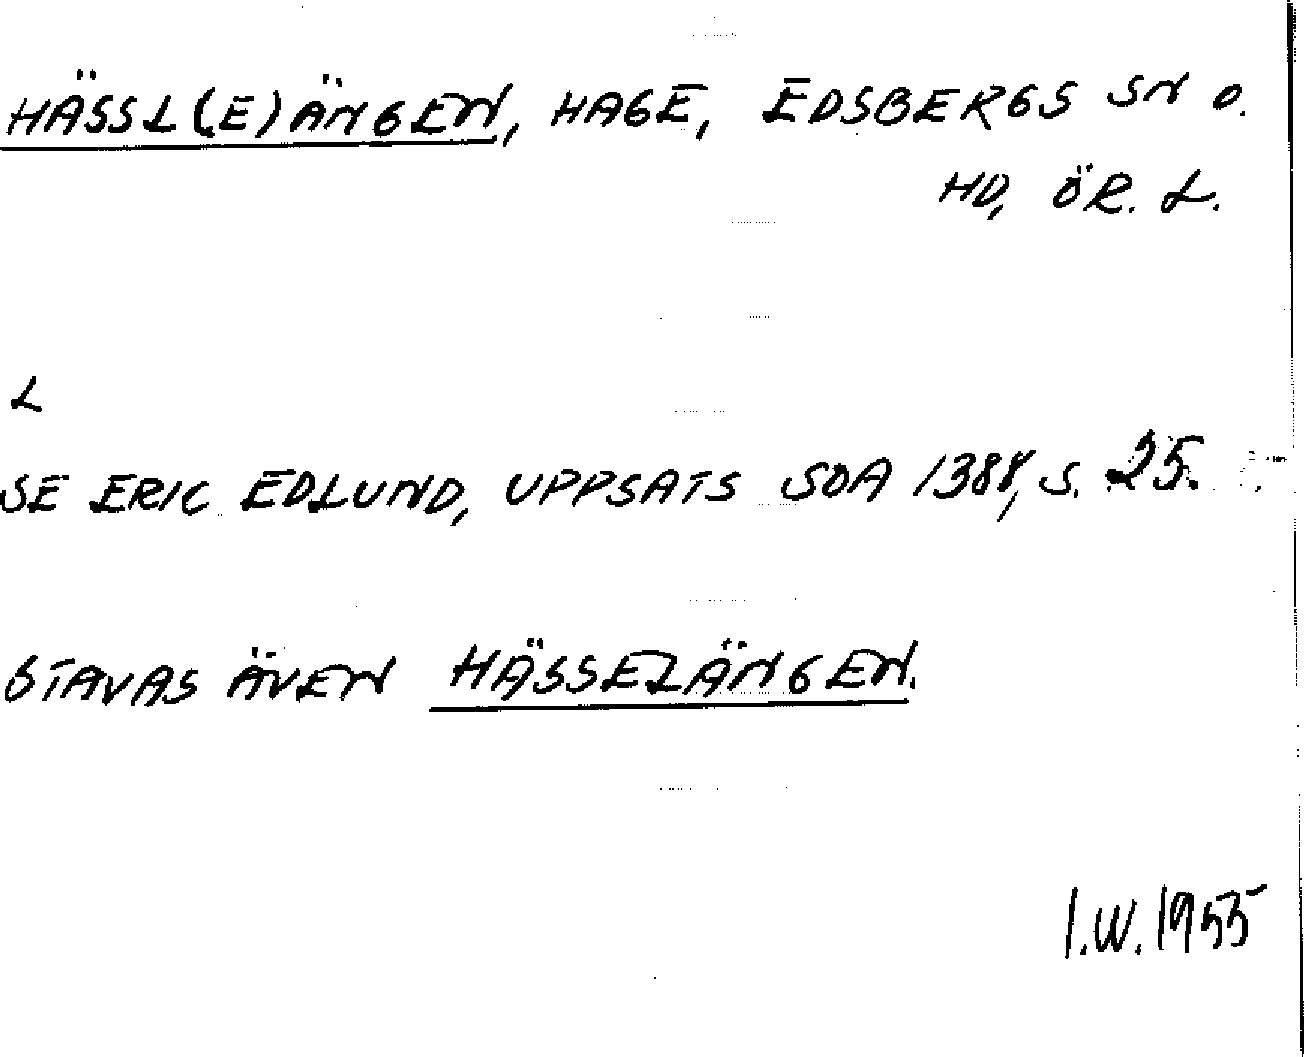 HÄSSL(E)ÄNGEN, HAGE, EDSBERGS SN O.
HD, ÖR. L.
L
SE ERIC EDLUND, UPPSATS SOA 1388, S. 25.
STAVAS ÄVEN HÄSSELÄNGEN.
I.W. 1955